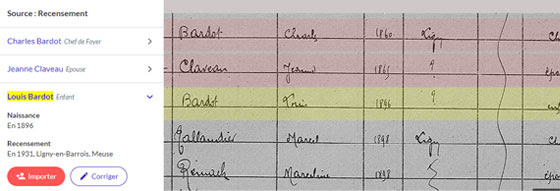 Source : Recensement
Charles Bardot Chef de Foyer
Jeanne Claveau Epouse
Louis Bardot Enfant
Naissance
En 1896
Recensement
En 1931, Ligny-en-Barrois, Meuse
Importer Corriger
Bardot Charles 1860 Ligny Ch
Claveau Jeanne 1865 épo
Bardot Louis 1896 en
Marcel 1898 Ligny Ch
Marceline 1898